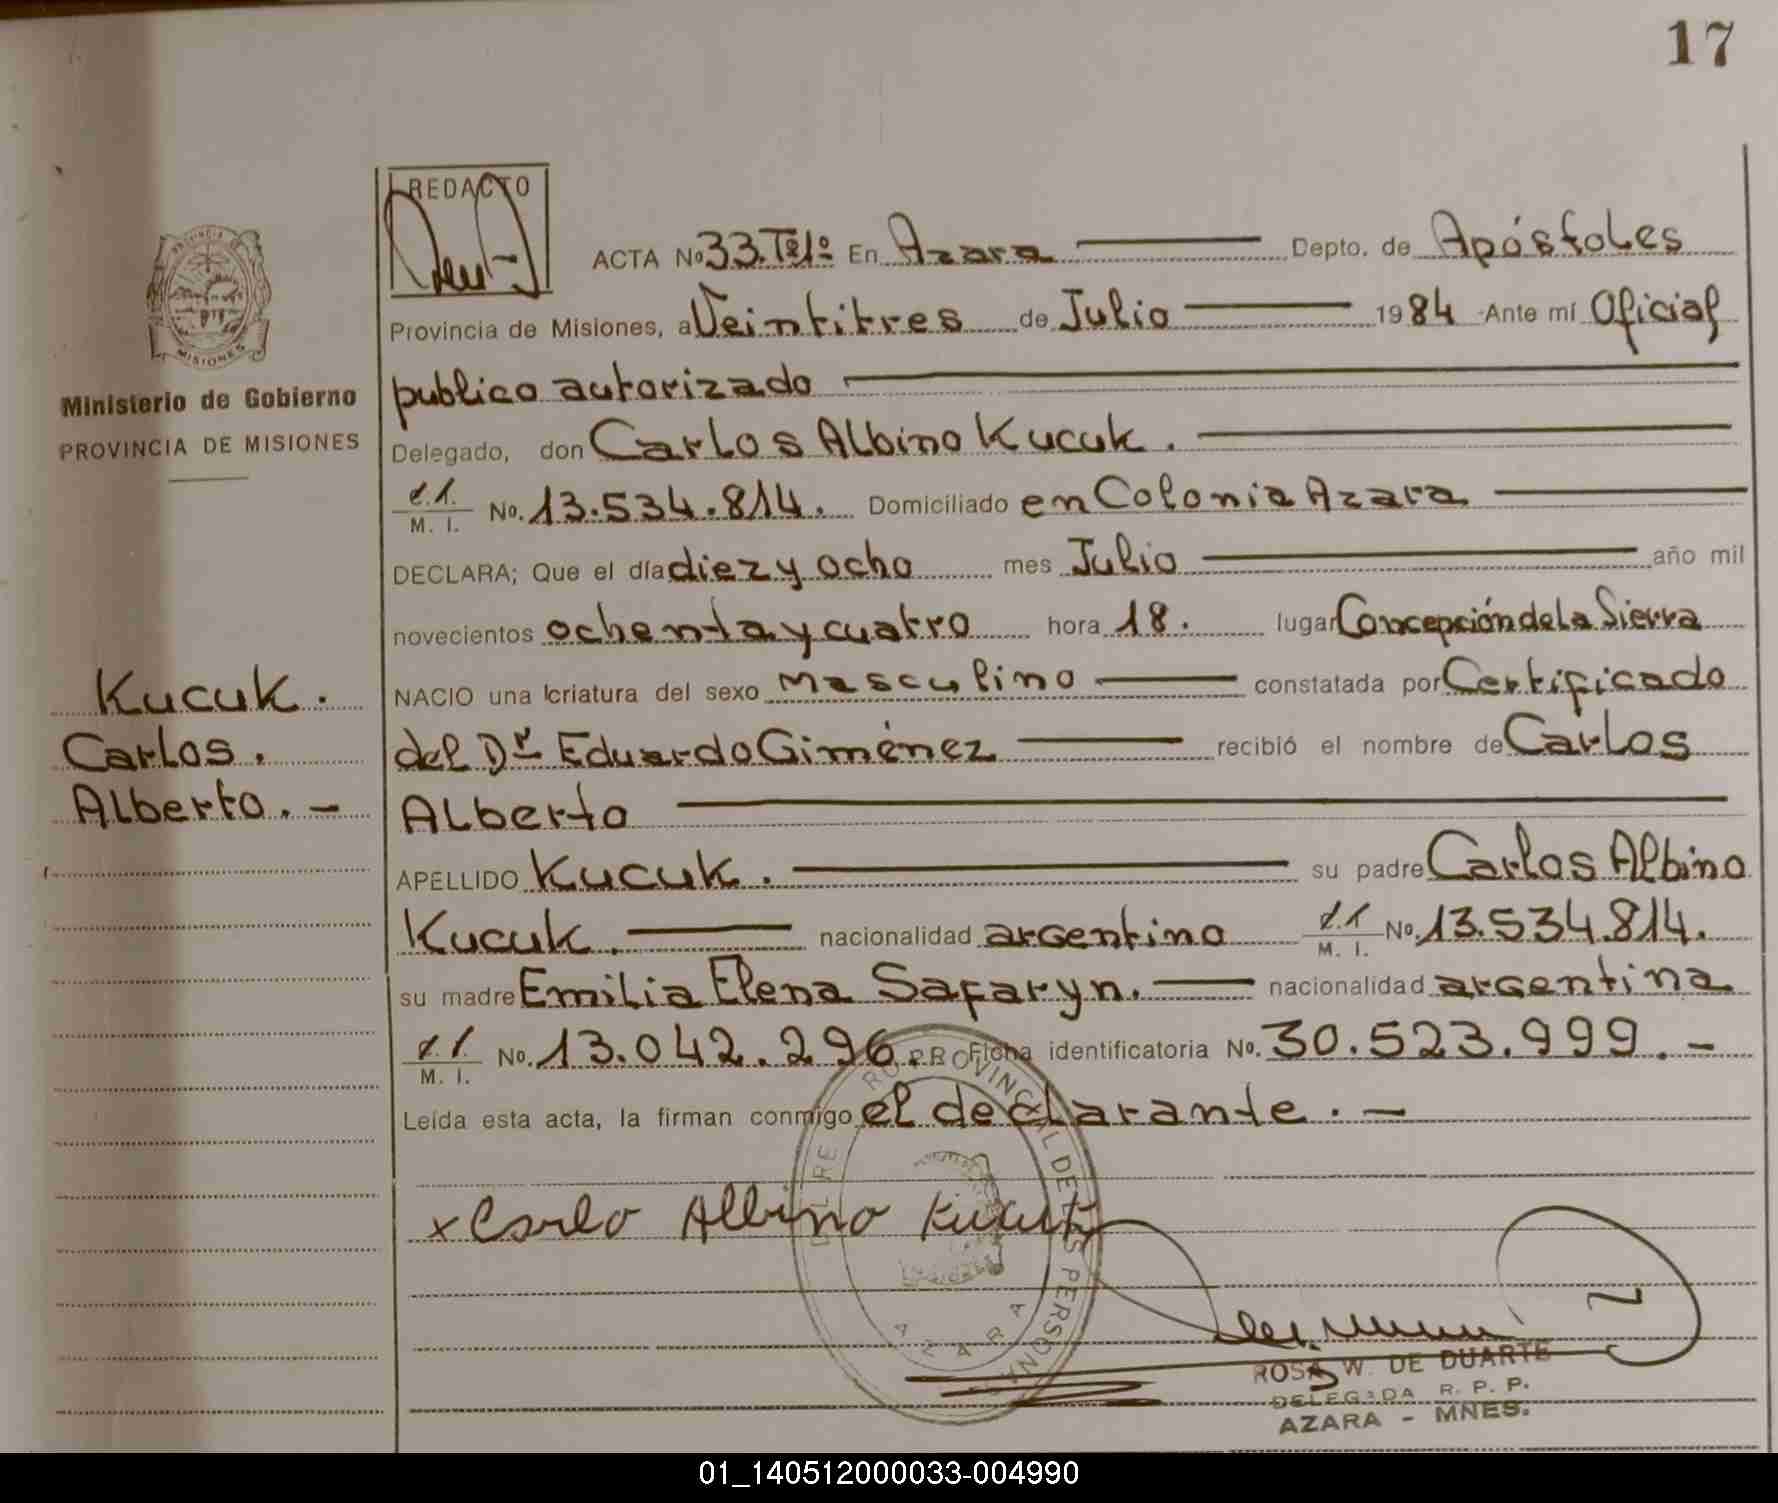 17
REDACTO
ACTA No 33. Tº1º En Azara Depto. de Apóstoles
Provincia de Misiones, a Veintitres de Julio 1984 Ante mí Oficial
publico autorizado
Delegado, don Carlos Albino Kucuk.
M. I. No. 13.534.814. Domiciliado en Colonia Azara
DECLARA; Que el día diez y ocho mes Julio año mil
novecientos ochenta y cuatro hora 18. lugar Concepción de la Sierra
NACIO una criatura del sexo Masculino constatada por Certificado
del Dr Eduardo Giménez recibió el nombre de Carlos
Alberto
APELLIDO Kucuk. su padre Carlos Albino
Kucuk. nacionalidad argentino M. I. No. 13.534.814.
su madre Emilia Elena Safaryn. nacionalidad argentina
M. I. No. 13.042.296. Ficha identificatoria No. 30.523.999.-
Leída esta acta, la firman conmigo el declarante.-
x Carlo Albino Kucuk
PROVINCIA DE MISIONES
Ministerio de Gobierno
PROVINCIA DE MISIONES
Kucuk.
Carlos.
Alberto.-
PROVINCIAL DE LAS PERSONAS
AZARA
ROSA W. DE DUARTE
DELEGADA R. P. P.
AZARA - MNES.
01_140512000033-004990